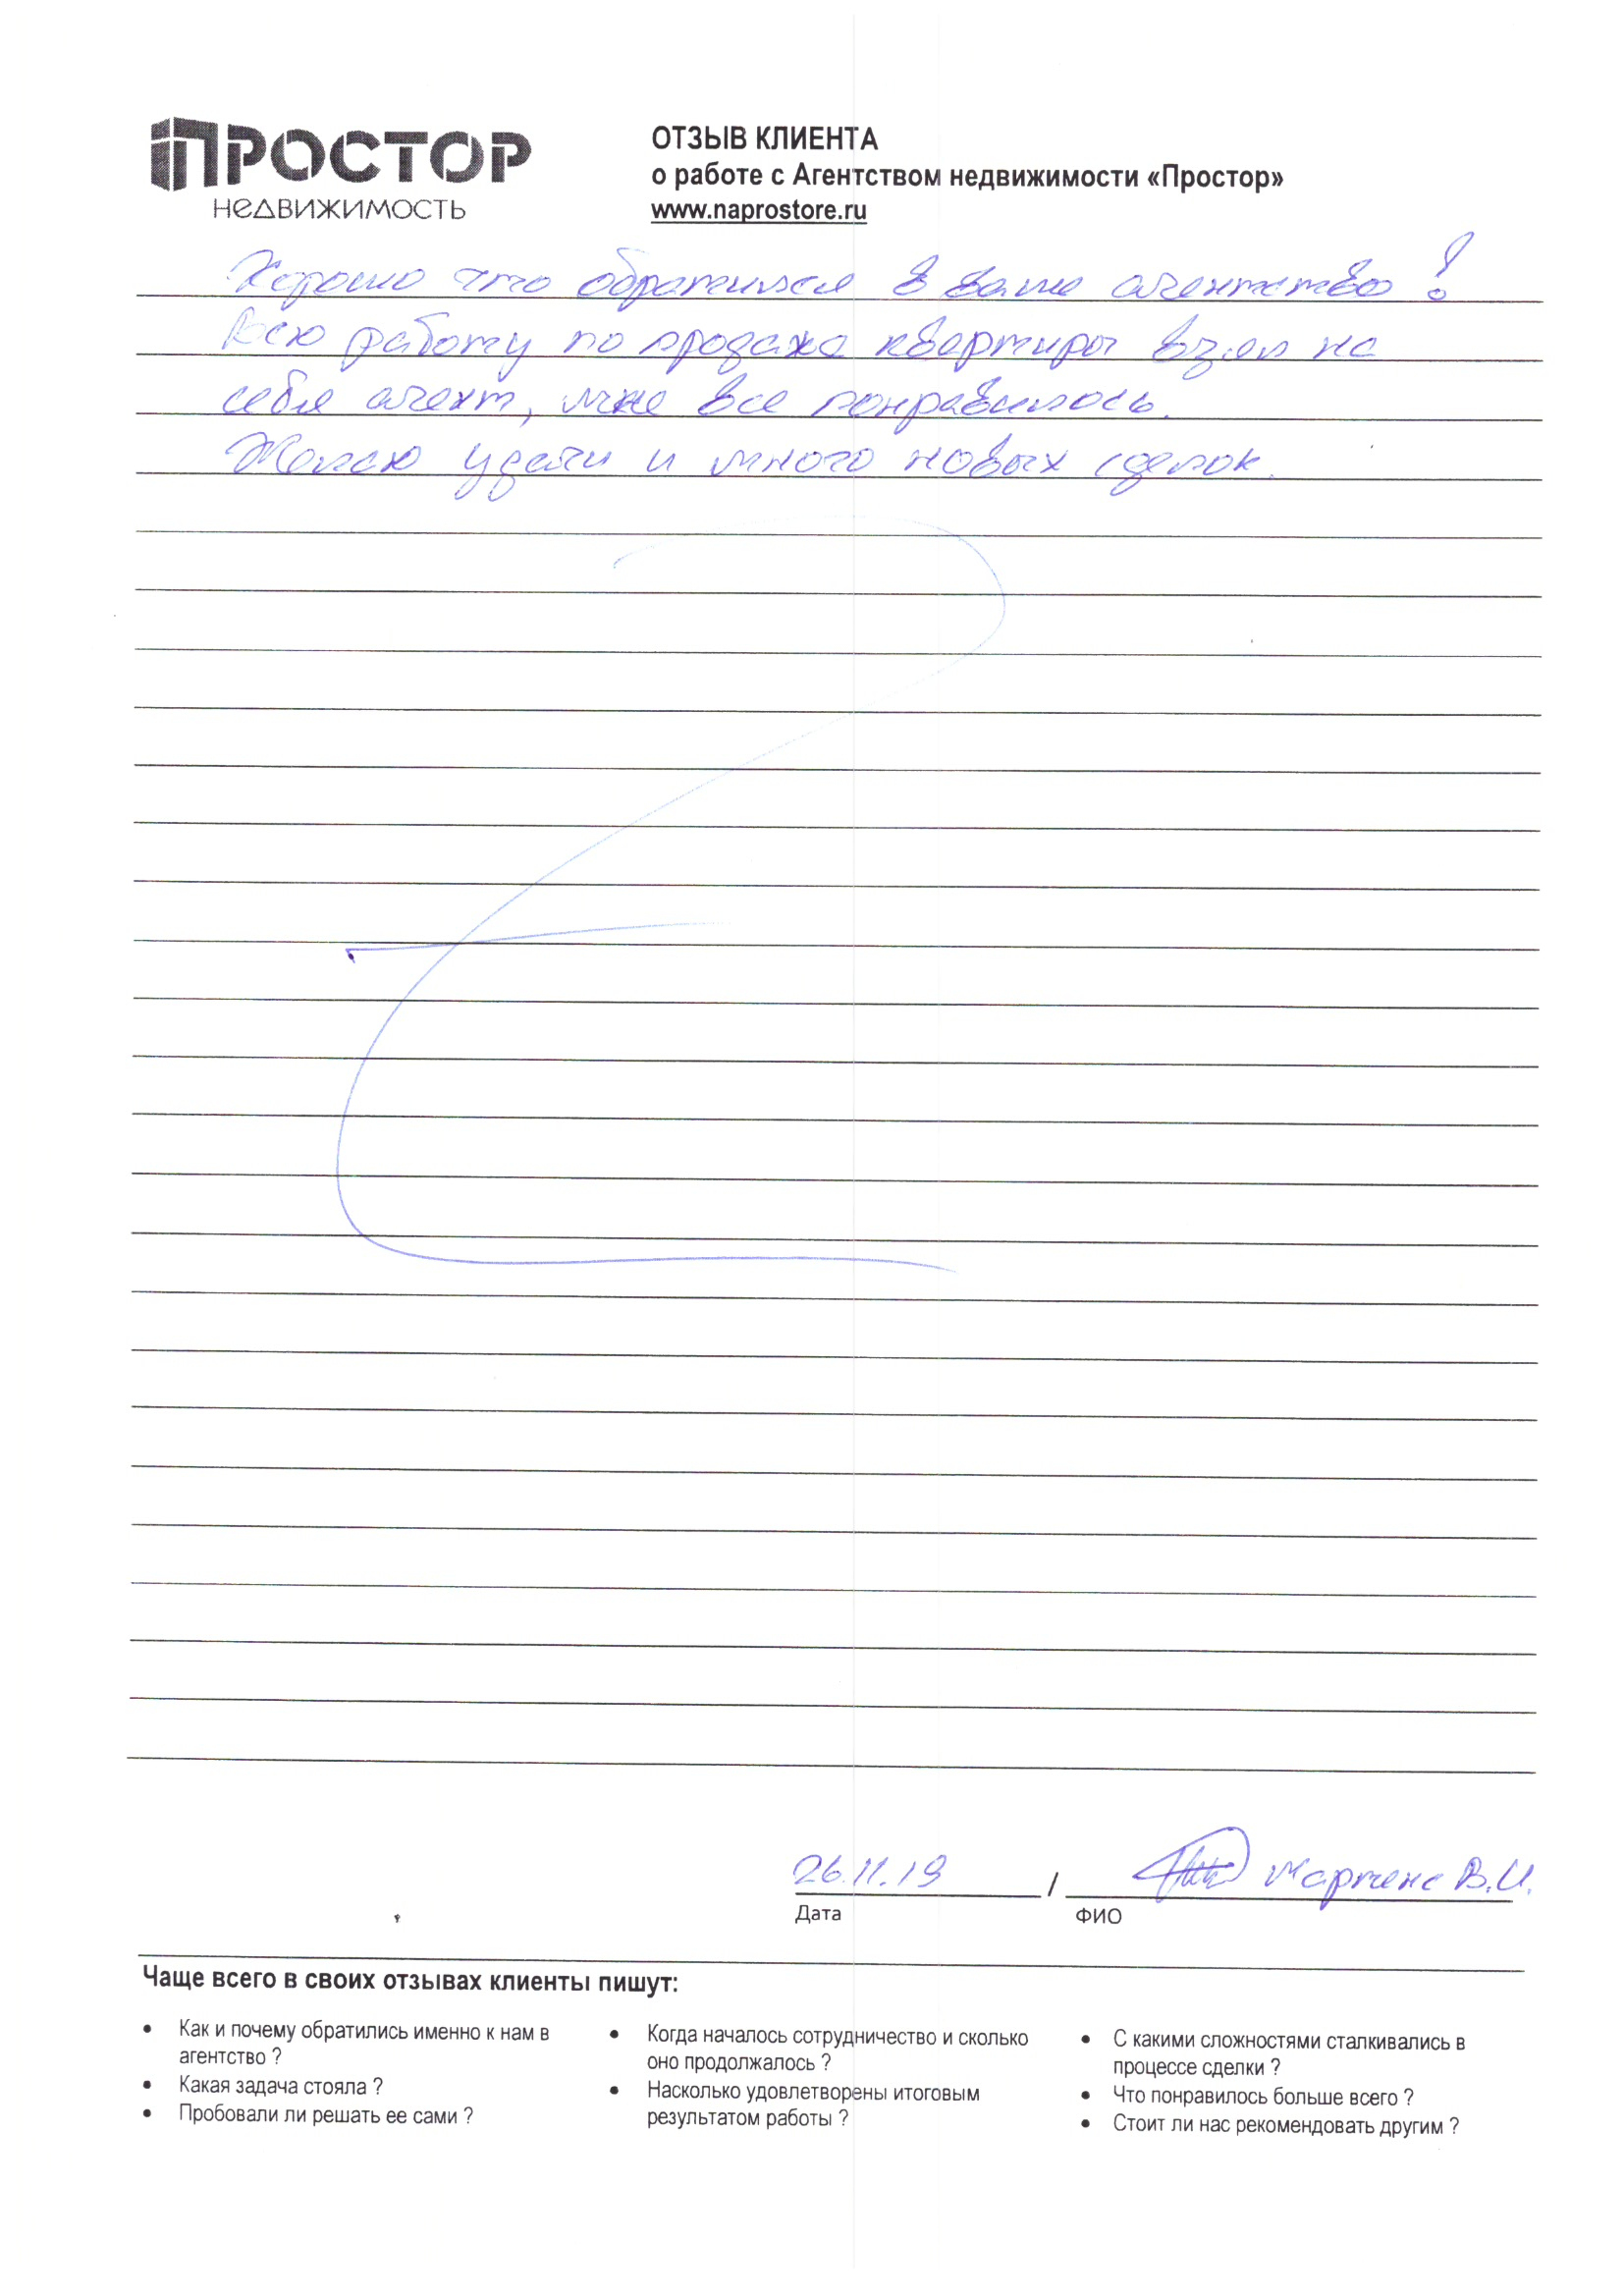 ПРОСТОР
НЕДВИЖИМОСТЬ
ОТЗЫВ КЛИЕНТА
о работе с Агентством недвижимости «Простор»
www.naprostore.ru
Хорошо что обратился в ваше агентство!
Всю работу по продаже квартиры взял на
себя агент, мне все понравилось.
Желаю удачи и много новых сделок.
26.11.19 / Мартенс В.И.
Дата ФИО
Чаще всего в своих отзывах клиенты пишут:
• Как и почему обратились именно к нам в
агентство ?
• Какая задача стояла ?
• Пробовали ли решать ее сами ?
• Когда началось сотрудничество и сколько
оно продолжалось ?
• Насколько удовлетворены итоговым
результатом работы ?
• С какими сложностями сталкивались в
процессе сделки ?
• Что понравилось больше всего ?
• Стоит ли нас рекомендовать другим ?